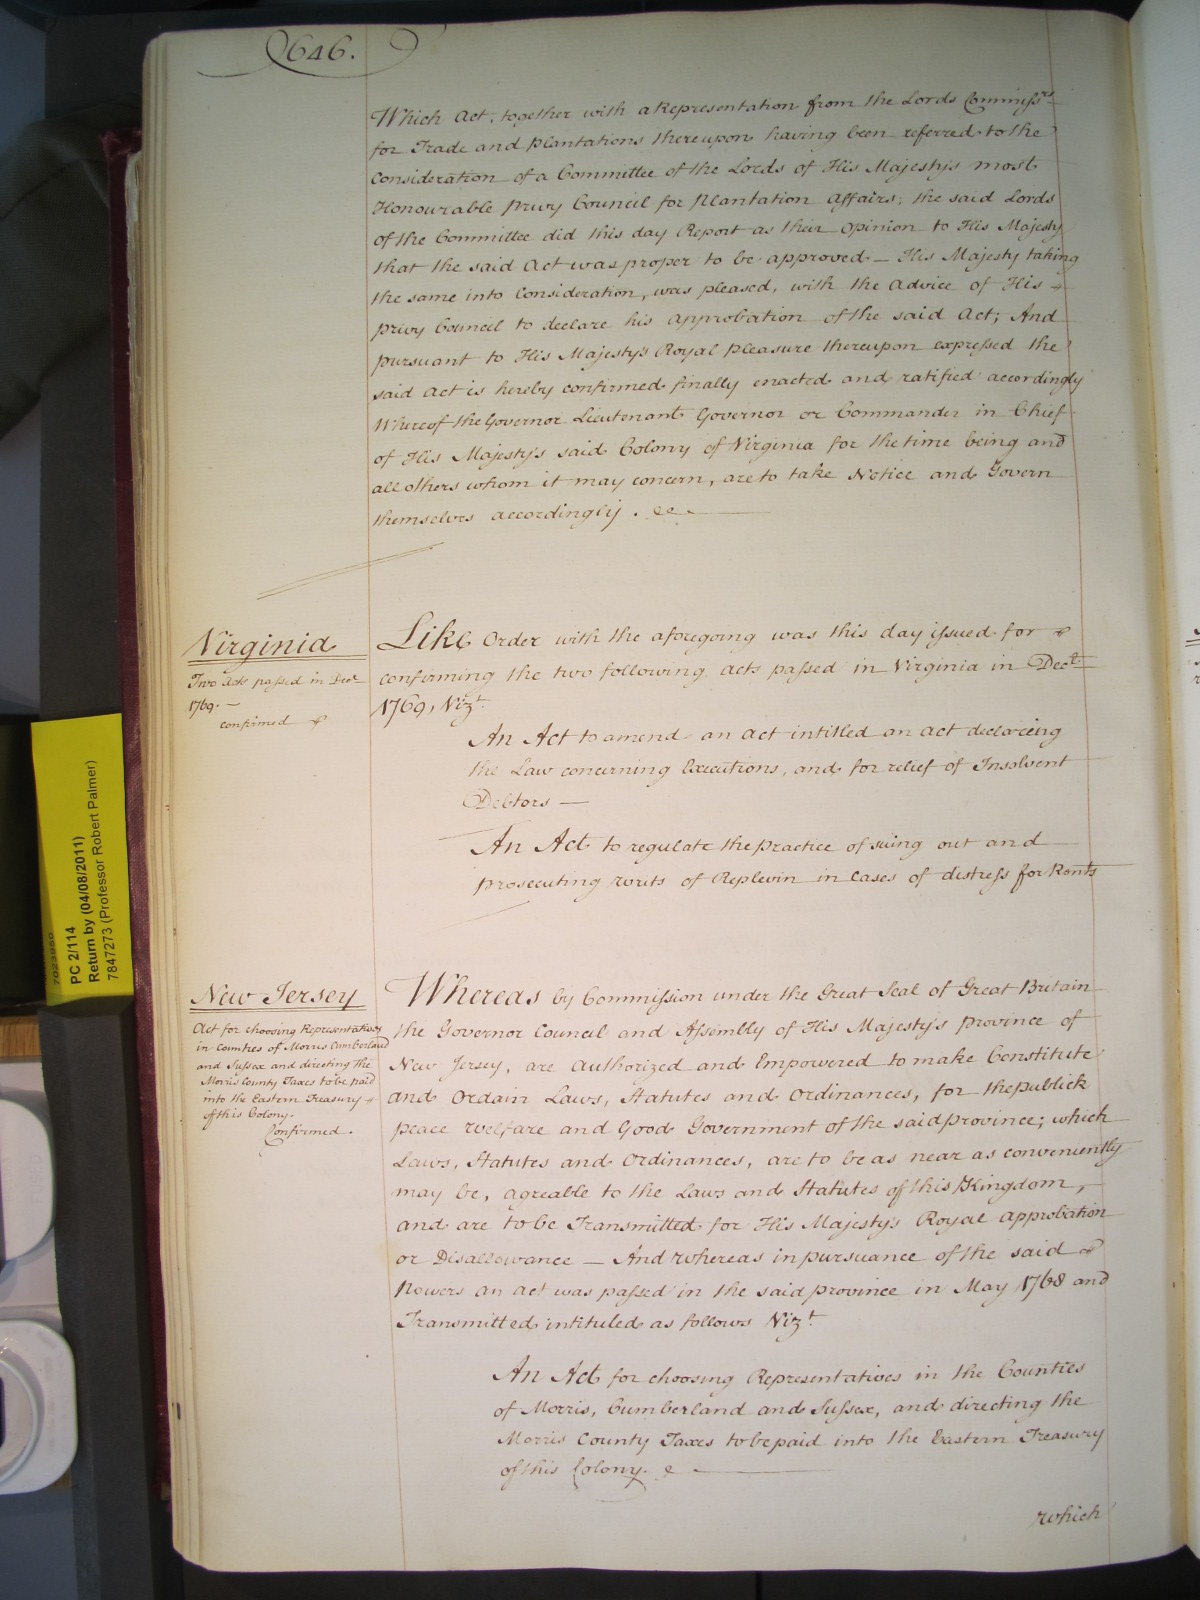 646.
Which Act, together with a Representation from the Lords Commissrs
for Trade and Plantations thereupon having been referred to the
Consideration of a Committee of the Lords of His Majesty's most
Honourable Privy Council for Plantation Affairs; the said Lords
of the Committee did this day Report as their Opinion to His Majesty
that the said Act was proper to be approved — His Majesty taking
the same into Consideration, was pleased, with the Advice of His
Privy Council to declare his Approbation of the said Act; And
pursuant to His Majesty's Royal Pleasure thereupon expressed the
said Act is hereby confirmed finally enacted and ratified accordingly
Whereof the Governor Lieutenant Governor or Commander in Chief
of His Majesty's said Colony of Virginia for the time being and
all others whom it may concern, are to take Notice and Govern
themselves accordingly.
Virginia
Two Acts passed in Decr
1769. —
confirmed
Like Order with the aforegoing was this day issued for
confirming the two following Acts passed in Virginia in Decr
1769, Vizt
An Act to amend an Act intitled an Act declaring
the Law concerning Executions, and for relief of Insolvent
Debtors —
An Act to regulate the practice of suing out and
prosecuting writs of Replevin in Cases of distress for Rents
New Jersey
Act for choosing Representatives
in Counties of Morris Cumberland
and Sussex and directing the
Morris County Taxes to be paid
into the Eastern Treasury
of this Colony.
Confirmed.
Whereas by Commission under the Great Seal of Great Britain
the Governor Council and Assembly of His Majesty's Province of
New Jersey, are Authorized and Empowered to make Constitute
and Ordain Laws, Statutes and Ordinances, for the publick
peace welfare and Good Government of the said Province; which
Laws, Statutes and Ordinances, are to be as near as conveniently
may be, agreable to the Laws and Statutes of this Kingdom,
and are to be Transmitted for His Majesty's Royal Approbation
or Disallowance — And whereas in pursuance of the said
Powers an Act was passed in the said Province in May 1768 and
Transmitted intituled as follows Vizt
An Act for choosing Representatives in the Counties
of Morris, Cumberland and Sussex, and directing the
Morris County Taxes to be paid into the Eastern Treasury
of this Colony.
which
PC 2/114
Return by (04/08/2011)
7847273 (Professor Robert Palmer)